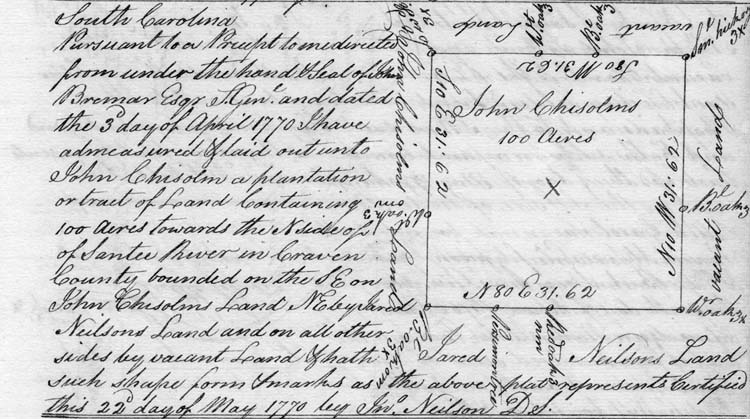 South Carolina
Pursuant to a Precept to me directed
from under the hand & Seal of John
Bremar Esqr S. Genl. and dated
the 3d day of April 1770 I have
admeasured & laid out unto
John Chisolm a plantation
or tract of Land Containing
100 Acres towards the N side of
of Santee River in Craven
County bounded on the SE on
John Chisolms Land NE by Jared
Neilsons Land and on all other
sides by vacant Land & hath
such shape form & marks as the above plat represents Certified
this 22d day of May 1770 by Jno Neilson D S.
John Chisolms Land
S 10 E 31.62
S 80 W 31.62
John Chisolms
100 Acres
X
N 10 W 31.62
N 80 E 31.62
vacant Land
Wt oak 3
Bl oak 3
3x
Bl oak 3
vacant Land
Wt oak 3x
Bl oak 3x
Jared Neilsons Land